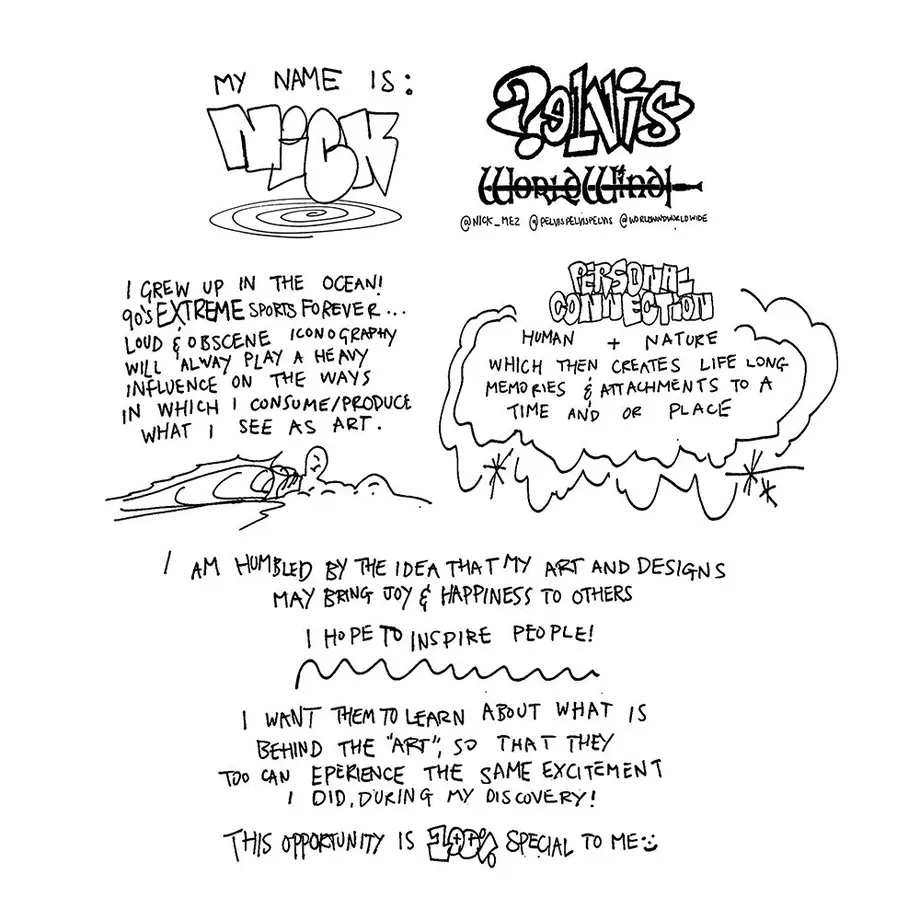 MY NAME IS:
NiCK
?elvis
WorldWind
@NICK_MEZ @PELVISPELVISPELVIS @WORLDWINDWORLDWIDE
I GREW UP IN THE OCEAN!
90'S EXTREME SPORTS FOREVER...
LOUD & OBSCENE ICONOGRAPHY
WILL ALWAY PLAY A HEAVY
INFLUENCE ON THE WAYS
IN WHICH I CONSUME/PRODUCE
WHAT I SEE AS ART.
PERSONAL
CONNECTION
HUMAN + NATURE
WHICH THEN CREATES LIFE LONG
MEMORIES & ATTACHMENTS TO A
TIME AND OR PLACE
I AM HUMBLED BY THE IDEA THAT MY ART AND DESIGNS
MAY BRING JOY & HAPPINESS TO OTHERS
I HOPE TO INSPIRE PEOPLE!
I WANT THEM TO LEARN ABOUT WHAT IS
BEHIND THE "ART", SO THAT THEY
TOO CAN EPERIENCE THE SAME EXCITEMENT
I DID, DURING MY DISCOVERY!
THIS OPPORTUNITY IS 100% SPECIAL TO ME :)